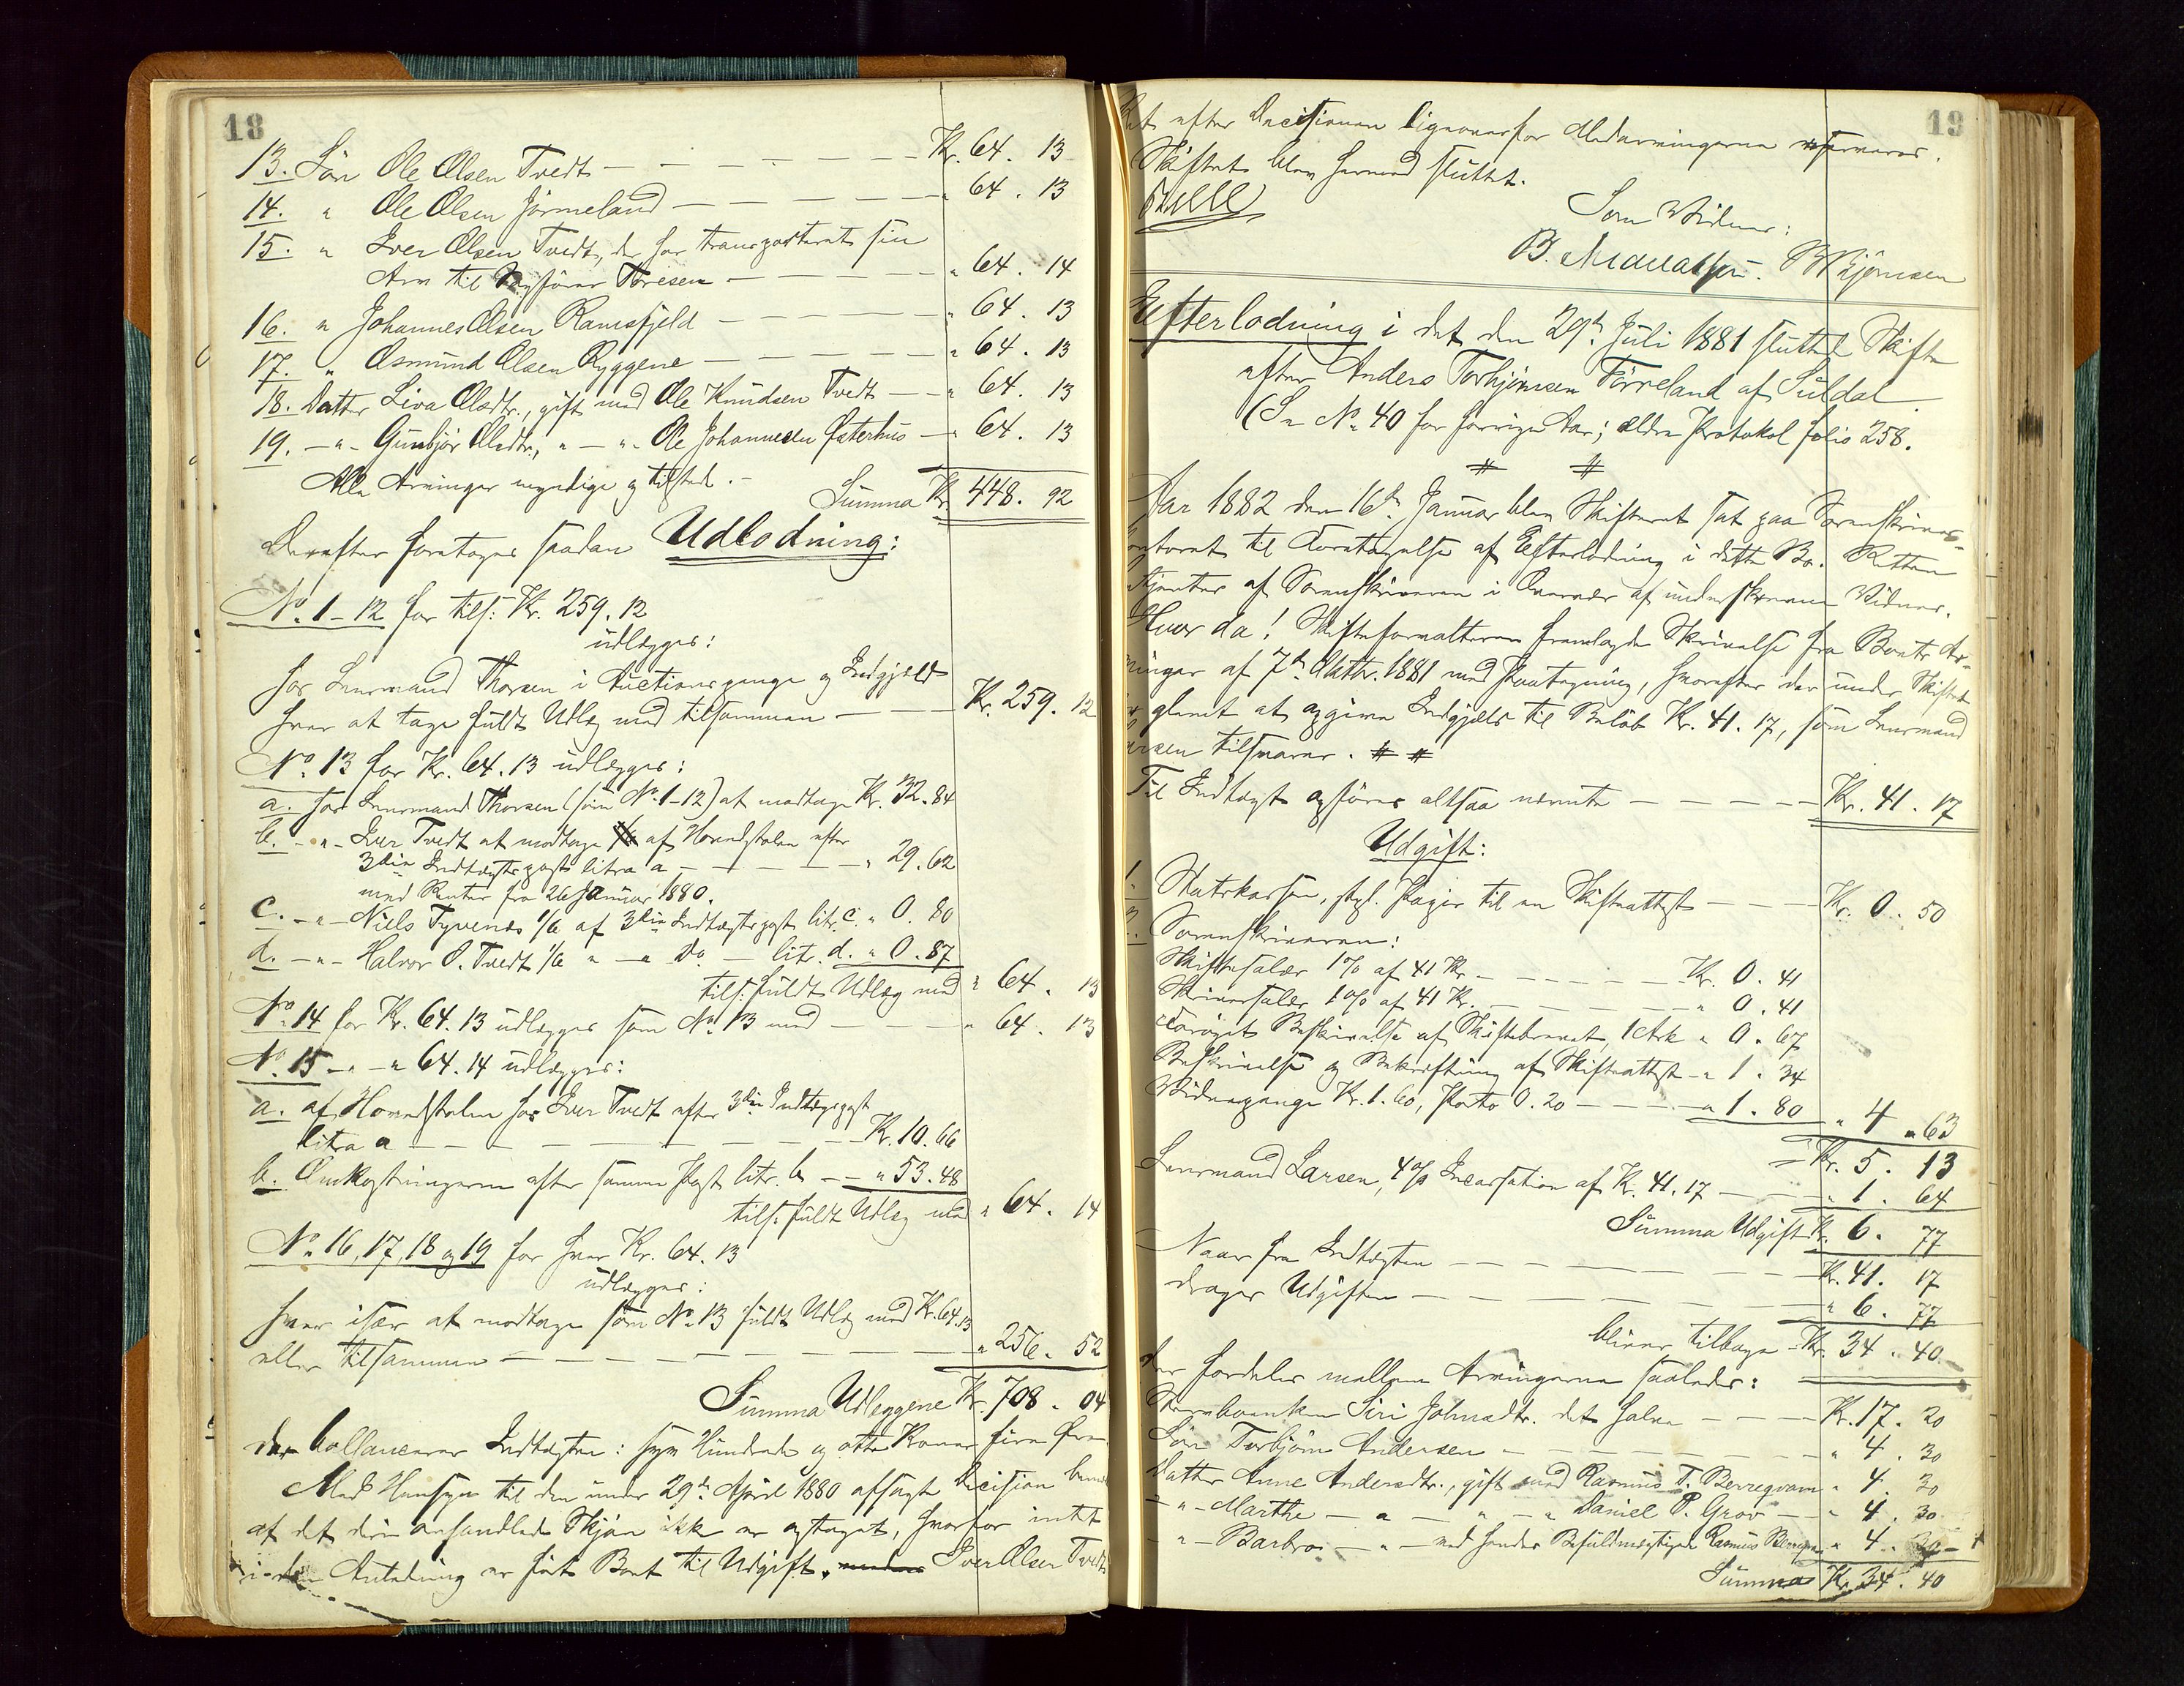 18
13. Søn Ole Olsen Tvedt — — — — — Kr. 64. 13
14. " Ole Olsen Jörmeland — — — — — " 64. 13
15. " Iver Olsen Tvedt, der har transporteret sin
Arv til Toresen — — — — — " 64. 14
16. " Johannes Olsen Ramsfjeld — — — — " 64. 13
17. " Osmund Olsen Ryggene — — — — " 64. 13
18. Datter Siva Olsdtr., gift med Ole Knudsen Tvedt — — " 64. 13
19. — " — Gunbjör Olsdtr., " — " Ole Johannesen Østerhus — " 64. 13
Alle Arvinger myndige og tilstede. — Summa Kr. 448. 92
Derefter foretoges saadan Udlodning:
No. 1 - 12 for tils: Kr. 259. 12
udlægges:
hos Lensmand Thorsen i Auctionspenge og Indgjæld
hver at tage fuldt Udlæg med tilsammen — — — Kr. 259. 12
No. 13 for Kr. 64. 13 udlægges:
a. hos Lensmand Thorsen (som No. 1-12) at modtage Kr. 32. 84
b. — " — Iver Tvedt at modtage af Hovedstolen efter
3die Indtægtspost litra a — — — — " 29. 62
med Renter fra 26 Januar 1880.
c. — " — Niels Tyvenes 1/6 af 3die Indtægtspost litr. c. " 0. 80
d. — " — Halvor O. Tvedt 1/6 " — " Do. — litr. d. " 0. 87
tils: fuldt Udlæg med " 64. 13
No. 14 for Kr. 64. 13 udlægges som No. 13 med — — — " 64. 13
No. 15 — " — " 64. 14 udlægges:
a. af Hovedstolen hos Iver Tvedt efter 3die Indtægtspost
litra a — — — — — — Kr. 10. 66
b. Omkostningerne efter samme Post litr. b — — " 53. 48
tils: fuldt Udlæg med " 64. 14
No. 16, 17, 18 og 19 for hver Kr. 64. 13
udlægges:
hver især at modtage som No. 13 fuldt Udlæg med Kr. 64. 13
eller tilsammen — — — — — — " 256. 52
Summa Udlæggene Kr. 708. 04
der ballancerer Indtægten: syv Hundrede og otte Kroner fire Øre.
Med Hensyn til den under 29de April 1880 afsagte Decision
at det deri omhandlede Skjøn ikke er optaget, hvorfor intet
i den Anledning er ført Boet til Udgift, Iver Olsen Tvedt
19
efter Decisionen ligeoverfor Medarvingerne
Skiftet blev hermed sluttet.
Som Vidner:
B. B Bjørnsen
Efterlodning i det den 29de Juli 1881 sluttede Skifte
efter Anders Torbjørnsen Førreland af Suldal.
(Se No. 40 for forrige Aar; ældre Protokol folio 258.
# #
Aar 1882 den 16de Januar blev Skifteret sat paa Sorenskriver-
kontoret til Foretagelse af Efterlodning i dette Bo. Retten
betjentes af Sorenskriveren i Overvær af underskrevne Vidner.
Hvor da! Skifteforvalteren fremlagde Skrivelse fra Boets Ar-
vinger af 7de Oktbr. 1881 med Paategning, hvorefter der under Skiftet
er glemt at opgive Indgjæld til Beløb Kr. 41. 17, som Lensmand
Larsen tilsvarer. # #
Til Indtægt opføres altsaa nævnte — — — — Kr. 41. 17
Udgift:
1. Statskassen, stpl. Papir til en Skifteattest — — — Kr. 0. 50
2. Sorenskriveren:
Skiftesalær 1% af 41 Kr. — — — — Kr. 0. 41
Skriversalær 1% af 41 Kr. — — — — " 0. 41
Forøget Beskrivelse af Skiftebrevet, 1 Ark " 0. 67
Beskrivelse og Bekræftning af Skifteattest — " 1. 34
Vidnepenge Kr. 1. 60, Porto 0. 20 — — — — " 1. 80 " 4. 63
Kr. 5. 13
Lensmand Larsen, 4% Incassation af Kr. 41. 17 — — " 1. 64
Summa Udgift Kr. 6. 77
Naar fra Indtægten — — — — — Kr. 41. 17
drages Udgiften — — — — — " 6. 77
bliver tilbage — Kr. 34. 40
der fordeles mellem Arvingerne saaledes:
Sterbvenken Siri Johnsdtr. det halve — — — Kr. 17. 20
Søn Torbjørn Andersen — — — — — " 4. 30
Datter Anne Andersdtr., gift med Rasmus T. Berreqvam " 4. 30
— " — Marthe — " — " — " Daniel P. Grov — — " 4. 30
— " — Barbro — " — ved hendes Befuldmægtigede Rasmus " 4. 30
Summa Kr. 34. 40